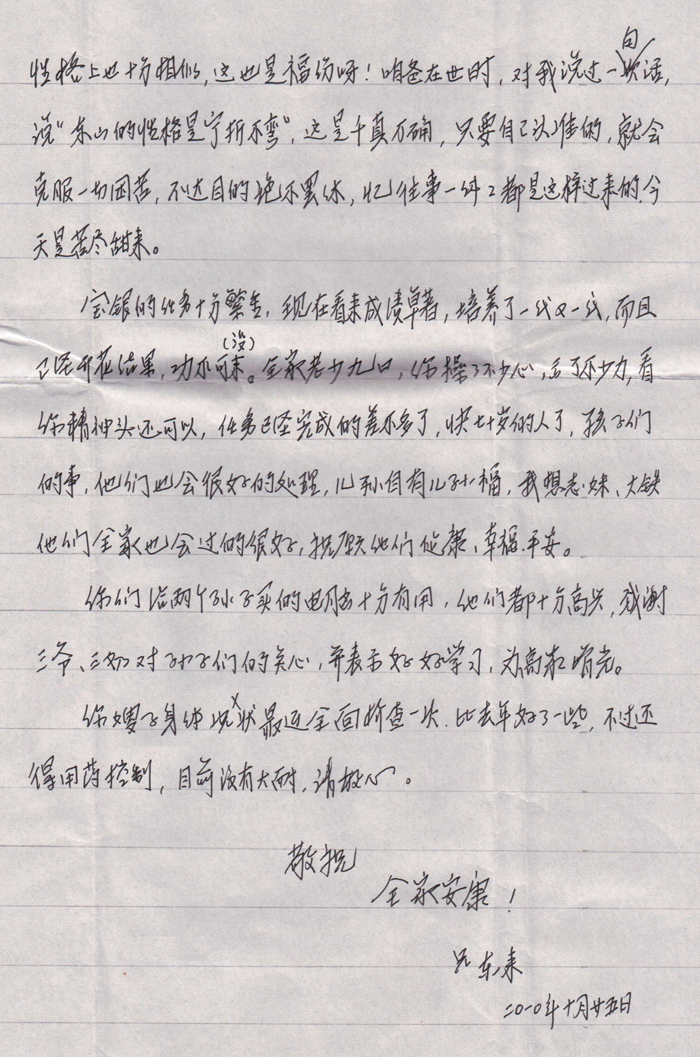 性格上也十分相似，这也是福份呀！咱爸在世时，对我说过一句话，
说"东山的性格是宁折不弯"，这是千真万确，只要自己认准的，就会
克服一切困苦，不达目的绝不罢休，忆往事一件々都是这样过来的.今
天是苦尽甜来。
宝银的任务十分繁重，现在看来成绩卓著，培养了一代又一代，而且
已经开花结果，功不可末(没)。全家老少九口，你操了不少心，出了不少力，看
你精神头还可以，任务已经完成的差不多了，快七十岁的人了，孩子们
的事，他们也会很好的处理，儿孙自有儿孙福，我想志妹、大铁
他们全家也会过的很好，祝愿他们健康、幸福.平安。
你们给两个孙子买的电脑十分有用，他们都十分高兴，感谢
三爷、三奶对孙子们的关心，并表示好好学习，为高家增光。
你嫂子身体状况最近全面检查一次.比去年好了一些，不过还
得用药控制，目前没有大碍，请放心。
敬祝
全家安康！
兄东来
二〇一〇年十月廿五日